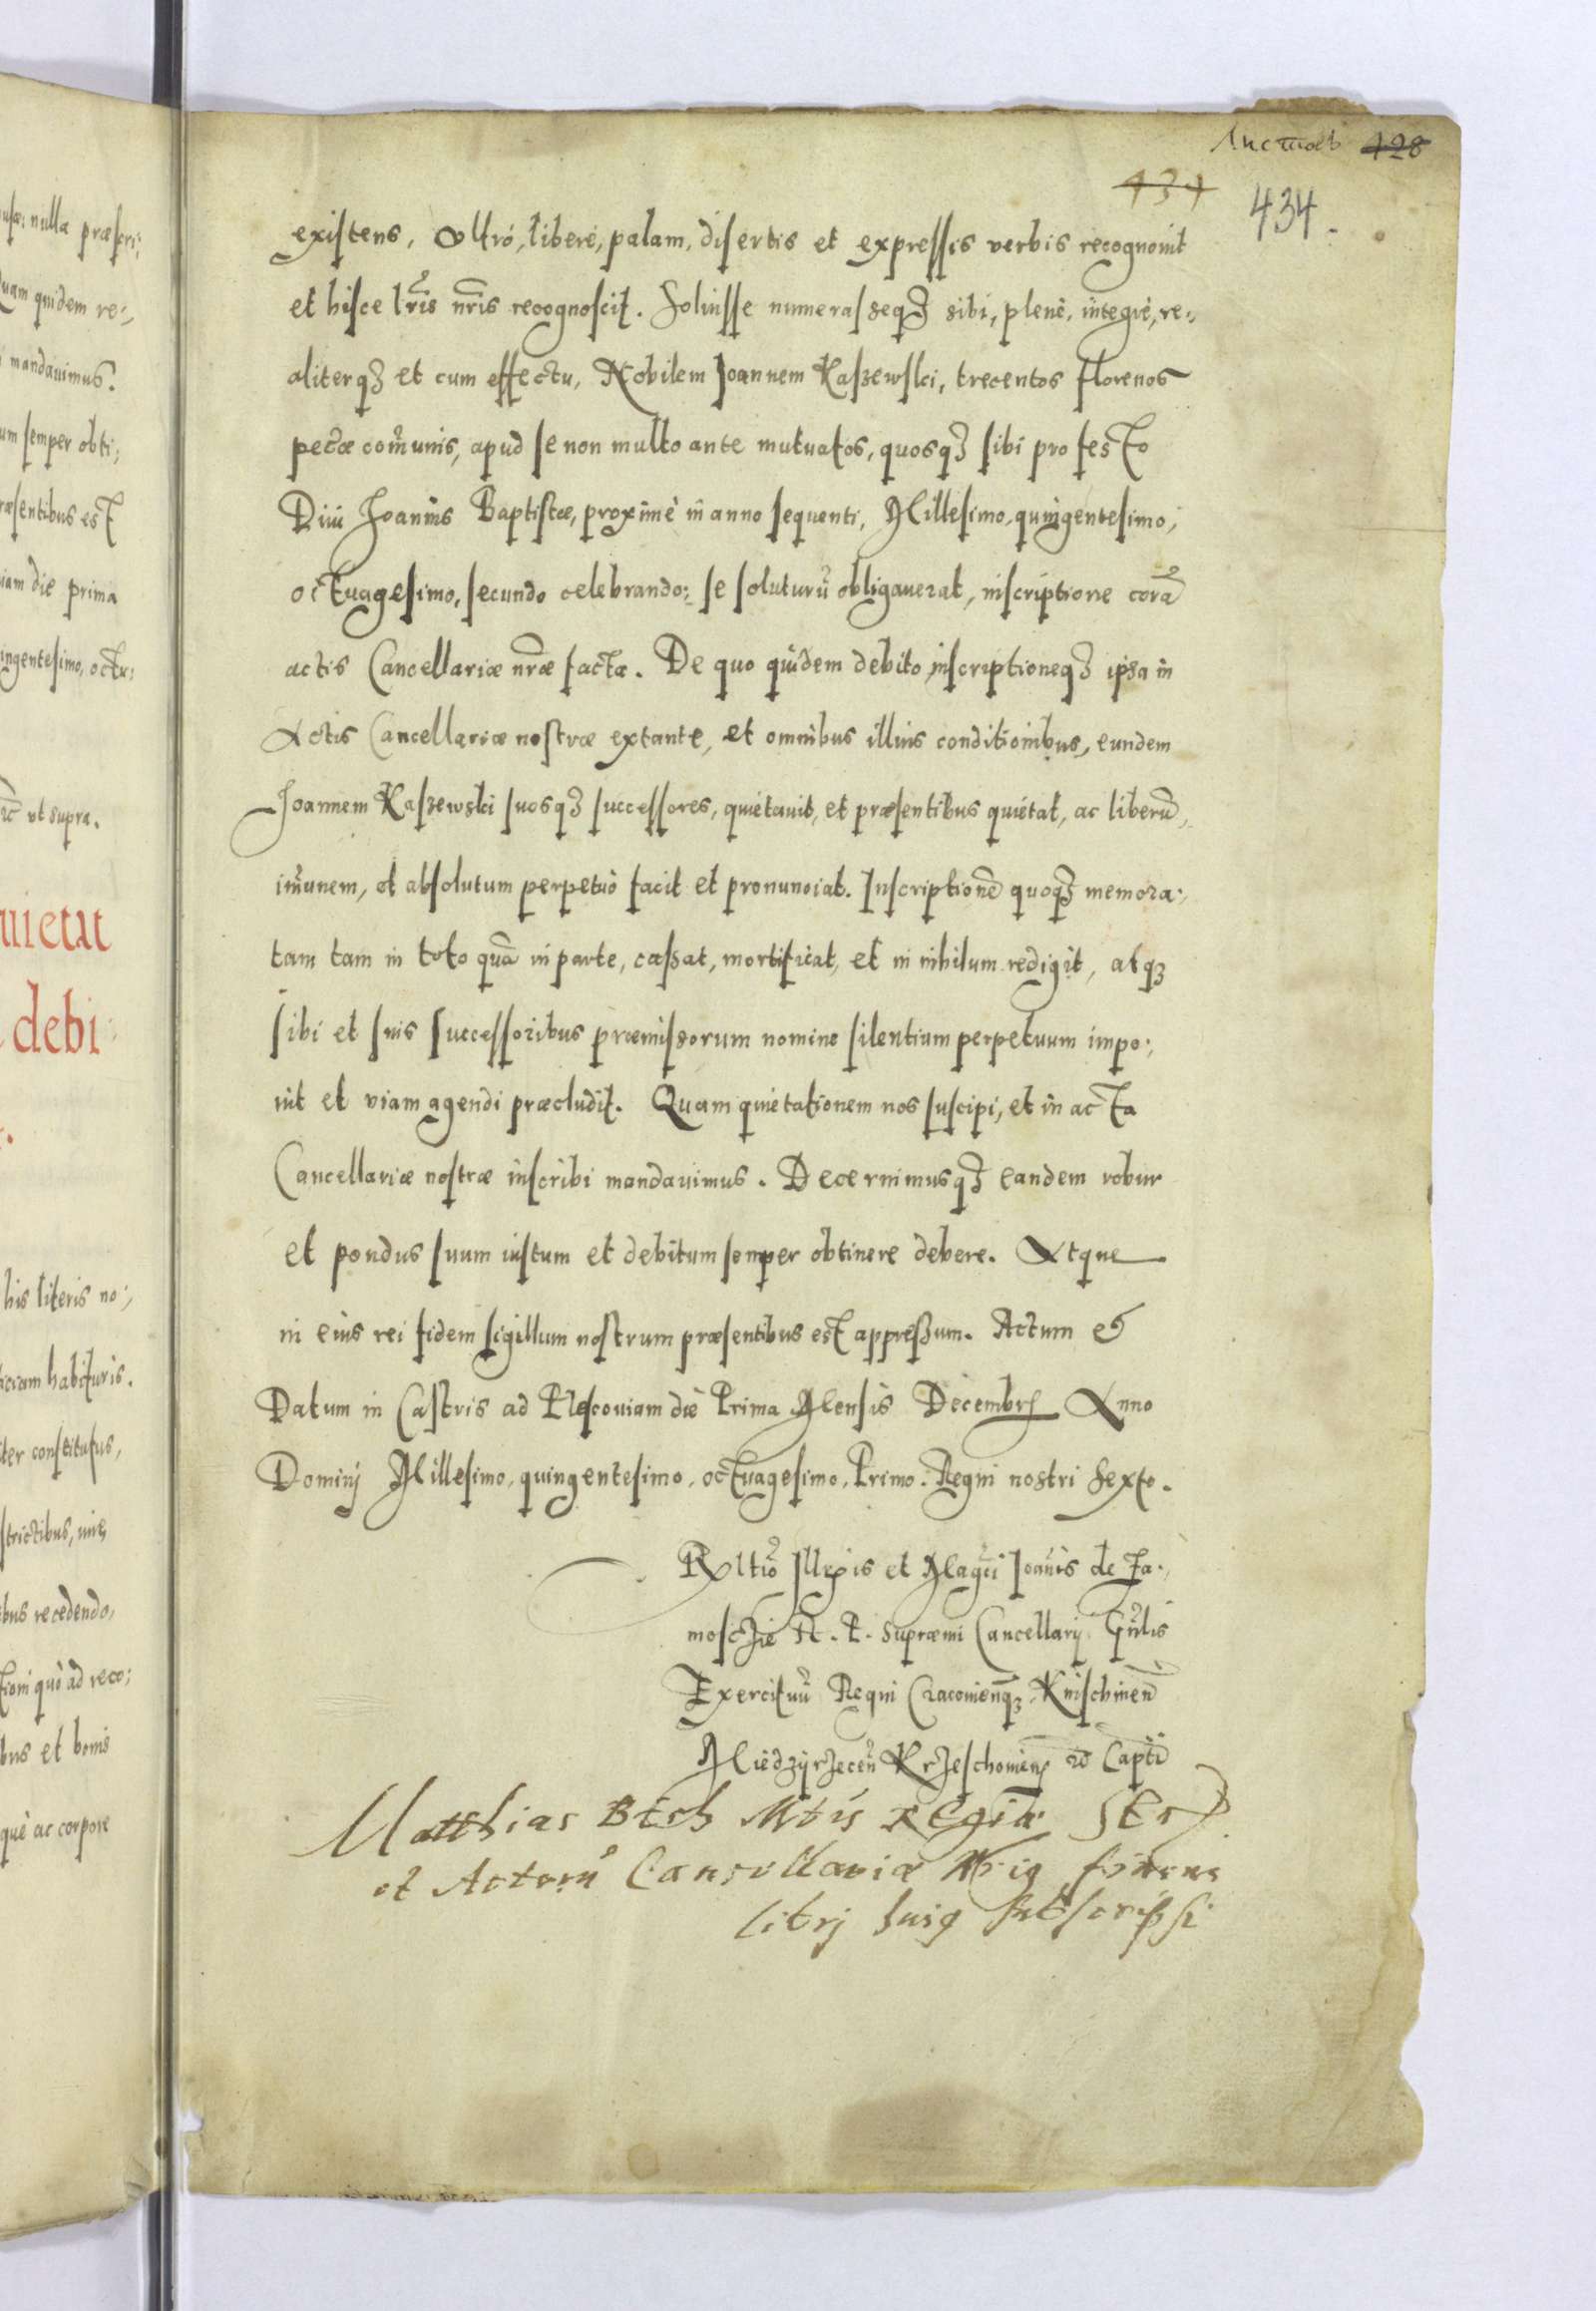 usæ: nulla præscri:
Quam quidem re:,
mandauimus.
um semper obti:
ræsentibus est
iam die prima
ingentesimo, octu:
ut supra.
uietat
debi:
his literis no:,
habituris.
iter constitutus,
strictibus,
ibus recedendo,
quò ad reco:
bus et bonis
què ac corpore
Листов 428
434
434.
existens, Vltrò, liberè, palam, disertis et expressis verbis recognouit
et hisce lris nris recognoscit. Soluisse numerasseqȝ sibi, plenè, integrè, re:,
aliterqȝ et cum effectu, Nobilem Joannem Kaszewski, trecentos florenos
pecæ com̃unis, apud se non multo ante mutuatos, quosqȝ sibi pro festo
Diui Joannis Baptistæ, proximè in anno sequenti, Millesimo, quingentesimo,
octuagesimo, secundo celebrando: se soluturũ obligauerat, inscriptione corã
actis Cancellariæ nræ factæ. De quo quidem debito, inscriptioneqȝ ipsa in
Actis Cancellariæ nostræ extante, et omnibus illius conditionibus, eundem
Joannem Kaszewski suosqȝ successores, quietauit, et præsentibus quietat, ac liberũ,
im̃unem, et absolutum perpetuò facit et pronunciat. Inscriptionẽ quoqȝ memora:,
tam tam in toto quã in parte, cassat, mortificat, et in nihilum redigit, atqȝ
sibi et suis successoribus præmissorum nomine silentium perpetuum impo:,
nit et viam agendi præcludit. Quam quietationem nos suscipi, et in acta
Cancellariæ nostræ inscribi mandauimus. Decernimusqȝ eandem robur
et pondus suum iustum et debitum semper obtinere debere. Atque
in eius rei fidem sigillum nostrum præsentibus est appressum. Actum et
Datum in Castris ad Plescouiam die Prima Mensis Decembrs Anno
Dominj Millesimo, quingentesimo, octuagesimo, Primo. Regni nostri Sexto.
Rltio Illris et Magci Joañis de Za:,
moschie R. P. Supræmi Cancellarij. Gñlis
Exercituũ Regni Cracouienqȝ, Knischinen̄
Miedzyrzecen̄ Krzeschouien̄ Capti
Matthias Mtis Regiæ Ser
et Actorũ Cancellariæ
librj huiꝰ subscripsi